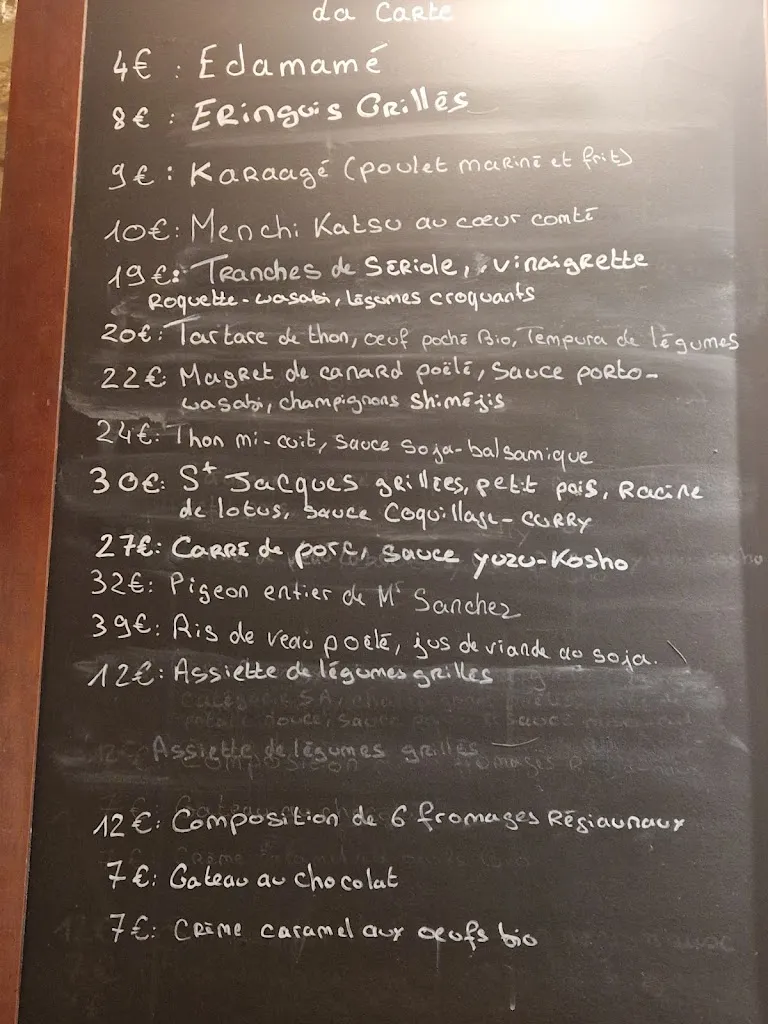 La Carte
4€ : Edamamé
8€ : Eringuis Grillés
9€ : Karaagé (poulet mariné et frit)
10€ : Menchi Katsu au cœur comté
19€ : Tranches de Sériole, vinaigrette
Roquette-wasabi, légumes croquants
20€ : Tartare de thon, œuf poché Bio, Tempura de légumes
22€ : Magret de canard poêlé, Sauce porto-
wasabi, champignons Shiméjis
24€ : Thon mi-cuit, sauce soja-balsamique
30€ : St Jacques grillées, petit pois, Racine
de lotus, sauce Coquillage-curry
27€ : Carré de porc, sauce yuzu-Kosho
32€ : Pigeon entier de Mr Sanchez
39€ : Ris de veau poêlé, jus de viande au soja.
12€ : Assiette de légumes grillés
Assiette de légumes grillés
12€ : Composition de 6 fromages Régiaunaux
7€ : Gateau au chocolat
7€ : Crème caramel aux œufs bio